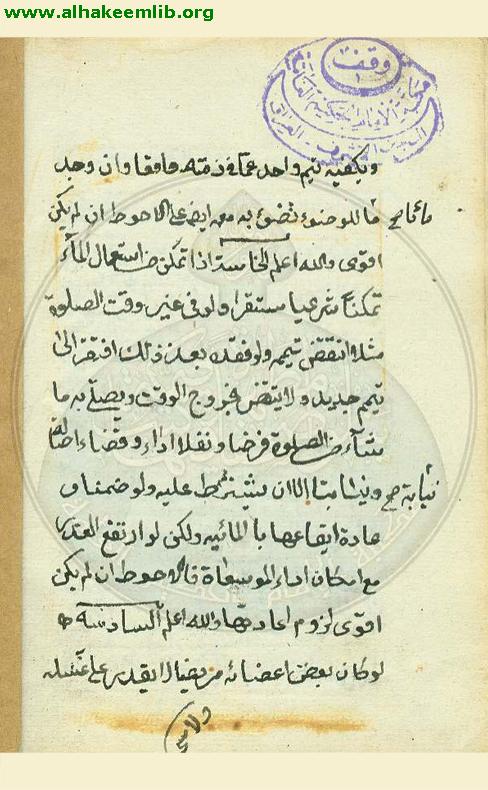 www.alhakeemlib.org
وقف
ويكفيه تيمم واحد عما في ذمته واقعا وان وجد
ماء للوضوء توضوء به معه ايضا على الاحوط ان لم يكن
اقوى والله اعلم الخامسة اذا تمكن من استعمال الماء
تمكنا شرعيا مستقرا ولو في غير وقت الصلوة
مثلا انتقض تيممه ولو فقده بعد ذلك افتقر الى
تيمم جديد ولا ينتقض بخروج الوقت ويصلي به ما
شاء من الصلوة فرضا ونفلا اداء وقضاء اصالة
ونيابة الا ان يشترط عليه ولو ضمنا
ايقاعها بالمائيه ولكن لو ارتفع العذر
مع امكان اداء الموسعاة فالاحوط ان لم يكن
اقوى لزوم اعادتها والله اعلم السادسة
لو كان بعض اعضائه مريضا لا يقدر على غسله
ولا